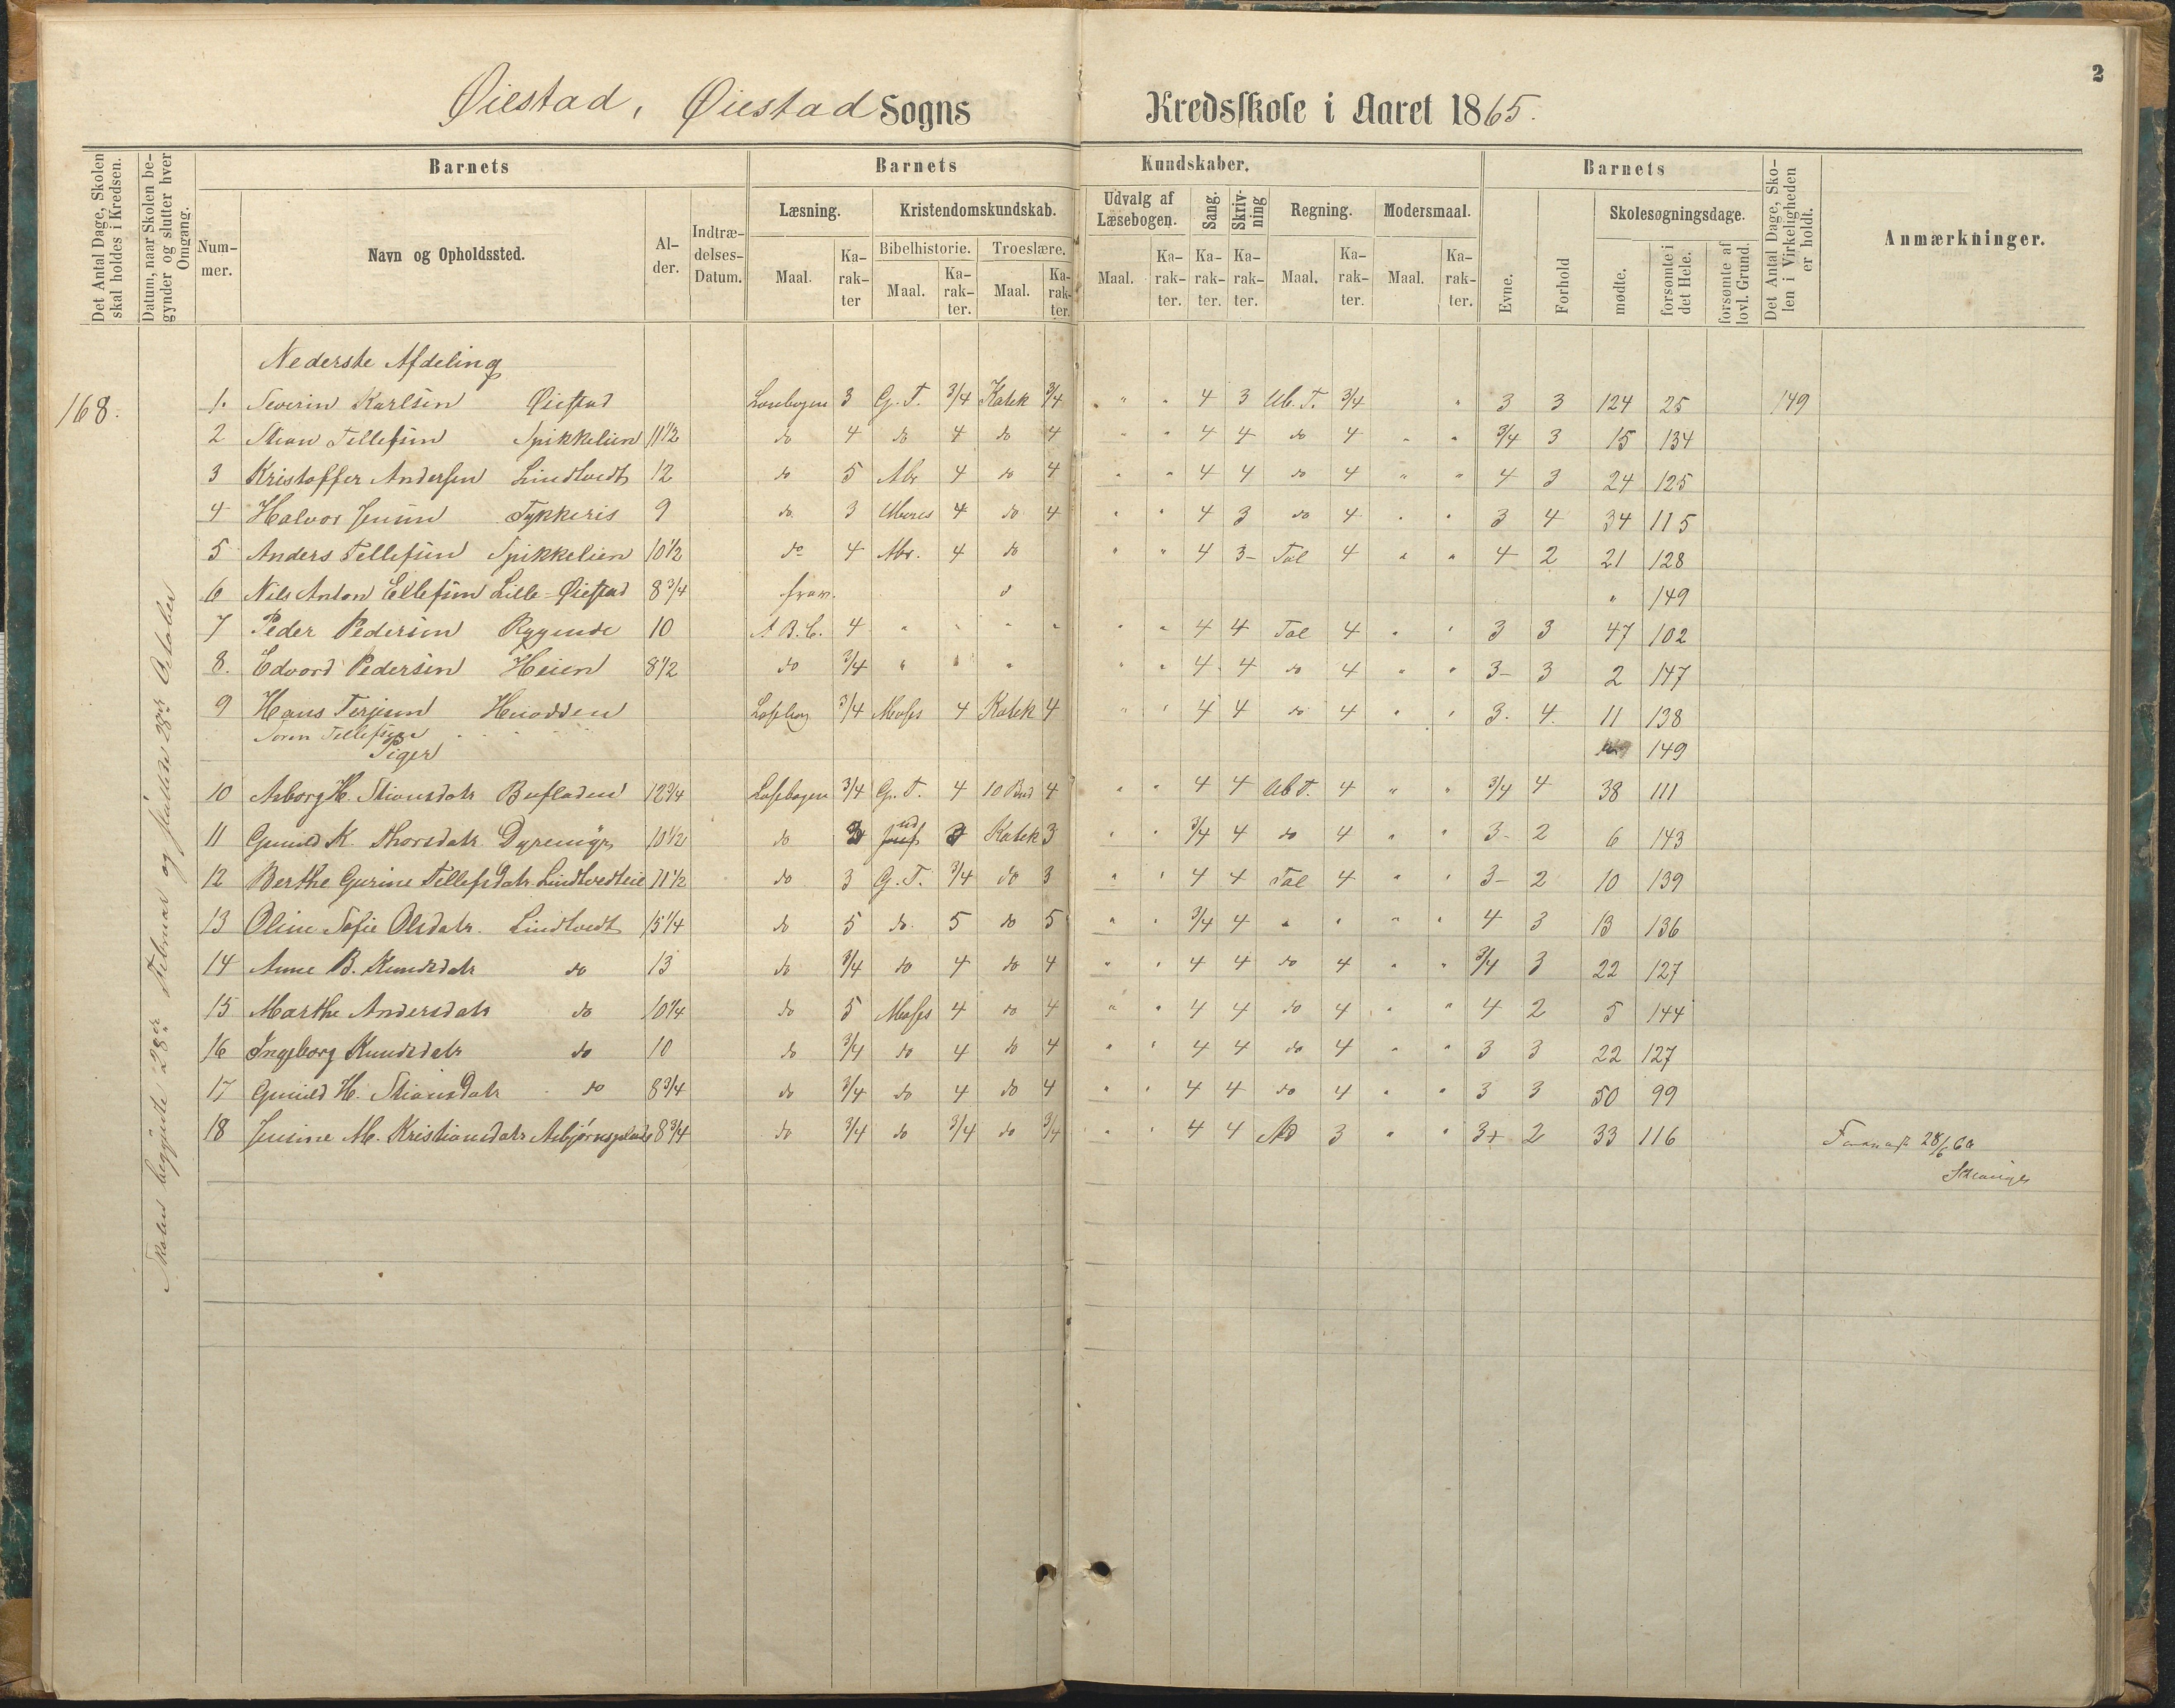 2
Øiestad, Øiestad Sogns Kredsskole i Aaret 1865.
Det Antal Dage, Skolen skal holdes i Kredsen.
Datum, naar Skolen begynder og slutter hver Omgang.
Barnets
Barnets Kundskaber.
Barnets
Det Antal Dage, Skolen i Virkeligheden er holdt.
Anmærkninger.
Nummer.
Navn og Opholdssted.
Alder.
Indtrædelses-Datum.
Læsning.
Kristendomskundskab.
Udvalg af Læsebogen.
Sang.
Skrivning
Regning.
Modersmaal.
Evne.
Forhold
Skolesøgningsdage.
Bibelhistorie. Troeslære.
Maal. Karakter Maal. Karakter. Maal. Karakter. Maal. Karakter. Karakter. Karakter. Maal. Karakter. Maal. Karakter.
mødte. forsømte i det Hele. forsømte af lovl. Grund.
Skolen begyndte 28de Februar og sluttede 28de Oktober
Nederste Afdeling
168. 1. Severin Karlsen Øiestad Læsebogen 3 G. T. 3/4 Katek 3/4 " " 4 3 Ub. T. 3/4 " 3 3 124 25 149
2 Stian Tellefsen Spikkelien 11 1/2 do 4 do 4 do 4 " " 4 4 do 4 " " 3/4 3 15 134
3 Kristoffer Andersen Lindtvedt 12 do 5 Abr 4 do 4 " " 4 4 do 4 " " 4 3 24 125
4 Halvor Jensen Tykkeris 9 do 3 Moses 4 do 4 " " 4 3 do 4 " " 3 4 34 115
5 Anders Tellefsen Spikkelien 10 1/2 do 4 Abr. 4 do " " 4 3- Tal 4 " " 4 2 21 128
6 Nils Anton Ellefsen Lille-Øiestad 8 3/4 frav. " 149
7 Peder Pedersen Rygende 10 A B. C. 4 " " " " " " 4 4 Tal 4 " " 3 3 47 102
8. Edvard Pedersen Heien 8 1/2 do 3/4 " " " " " 4 4 do 4 " " 3- 3 2 147
9 Hans Terjesen Hnodden Læsebog 3/4 Moses 4 Katek 4 " " 4 4 do 4 " " 3. 4. 11 138
Søren Tellefsen 149
Piger
10 Asborg H. Stiansdatr Bufladen 12 3/4 Læsebogen 3/4 G. T. 4 10 Bud 4 " " 4 4 Ub T. 4 " " 3/4 4 38 111
11 Gunild K. Thorsdatr. Dyremyr 10 1/2 do 3 Josef ud Katek 3 " " 3/4 4 do 4 " " 3- 2 6 143
12 Berthe Gurine Tellefsdatr. Lindtvedteie 11 1/2 do 3 G. T. 3/4 do 3 " " 4 4 Tal 4 " " 3- 2 10 139
13 Oline Sofie Olsdatr. Lindtvedt 15 1/4 do 5 do. 5 do 5 " " 3/4 4 " " " " 4 3 13 136
14 Anne B. Knudsdatr do 13 do 3/4 do 4 do 4 " " 4 4 do 4 " " 3/4 3 22 127
15 Marthe Andersdatr do 10 1/4 do 5 Moses 4 do 4 " " 4 4 do 4 " " 4 2 5 144
16 Ingeborg Knudsdatr do 10 do 3/4 do 4 do 4 " " 4 4 do 4 " " 3 3 22 127
17 Gunild H. Stiansdatr do 8 3/4 do 3/4 do 4 do 4 " " 4 4 do 4 " " 3 3 50 99
18 Jensine M. Kristiansdatr Asbjørnsplads 8 3/4 do 3/4 do 3/4 do 3/4 " " 4 4 Ad 3 " " 3+ 2 33 116 28/6 66